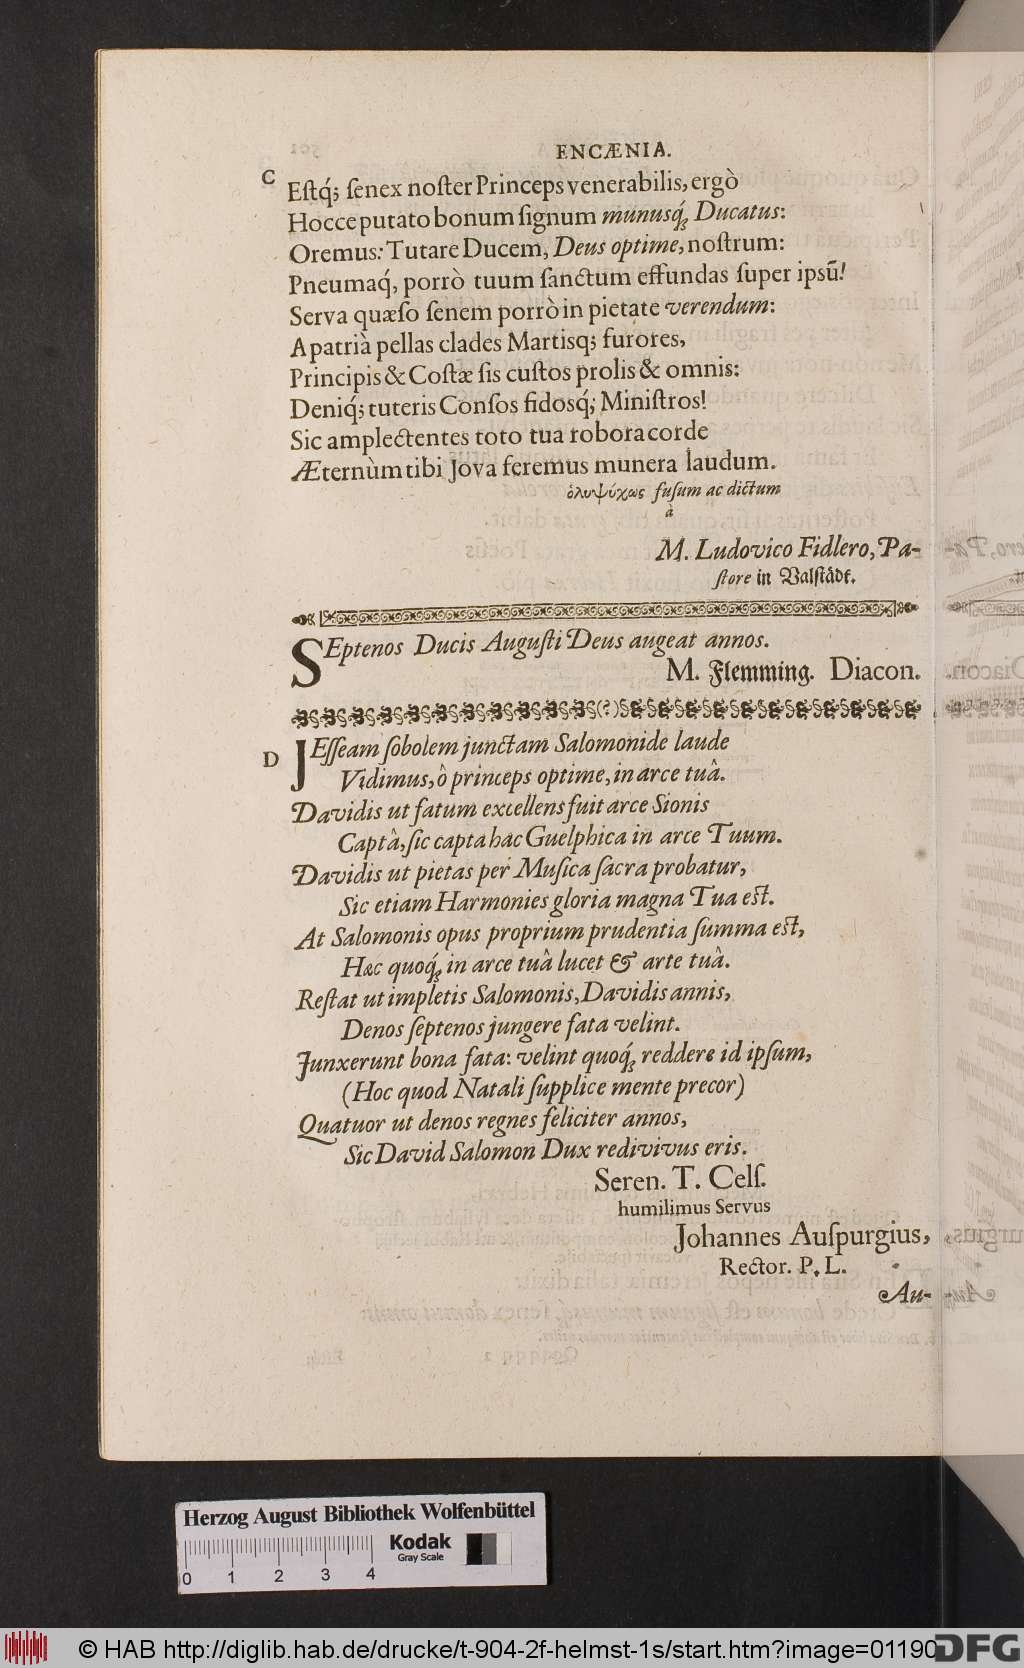 ENCÆNIA.
C
Eſtq́; ſenex noſter Princeps venerabilis, ergò
Hocce putato bonum ſignum munusq́ꝫ Ducatus:
Oremus: Tutare Ducem, Deus optime, noſtrum:
Pneumaq́, porrò tuum ſanctum effundas ſuper ipsū!
Serva quæſo ſenem porrò in pietate verendum:
A patriâ pellas clades Martisq; furores,
Principis & Coſtæ ſis cuſtos prolis & omnis:
Deniq́; tuteris Conſos fidosq́; Miniſtros!
Sic amplectentes toto tua robora corde
Æternùm tibi Jova feremus munera laudum.
ὁλυψύχως fuſum ac dictum
à
M. Ludovico Fidlero, Pa-
ſtore in Valſtådt.
SEptenos Ducis Auguſti Deus augeat annos.
M. Flemming. Diacon.
(?)
D
JEſſeam ſobolem junctam Salomonide laude
Vidimus, ô princeps optime, in arce tuâ.
Davidis ut fatum excellens fuit arce Sionis
Captâ, ſic capta hæc Guelphica in arce Tuum.
Davidis ut pietas per Muſica ſacra probatur,
Sic etiam Harmonies gloria magna Tua eſt.
At Salomonis opus proprium prudentia ſumma eſt,
Hæc quoq́ꝫ in arce tuâ lucet & arte tuâ.
Reſtat ut impletis Salomonis, Davidis annis,
Denos ſeptenos jungere fata velint.
Junxerunt bona fata: velint quoq́ꝫ reddere id ipſum,
(Hoc quod Natali ſupplice mente precor)
Quatuor ut denos regnes feliciter annos,
Sic David Salomon Dux redivivus eris.
Seren. T. Celſ.
humilimus Servus
Johannes Auſpurgius,
Rector. P. L.
Au-
Herzog August Bibliothek Wolfenbüttel
Kodak
Gray Scale
0 1 2 3 4
© HAB http://diglib.hab.de/drucke/t-904-2f-helmst-1s/start.htm?image=01190
DFG